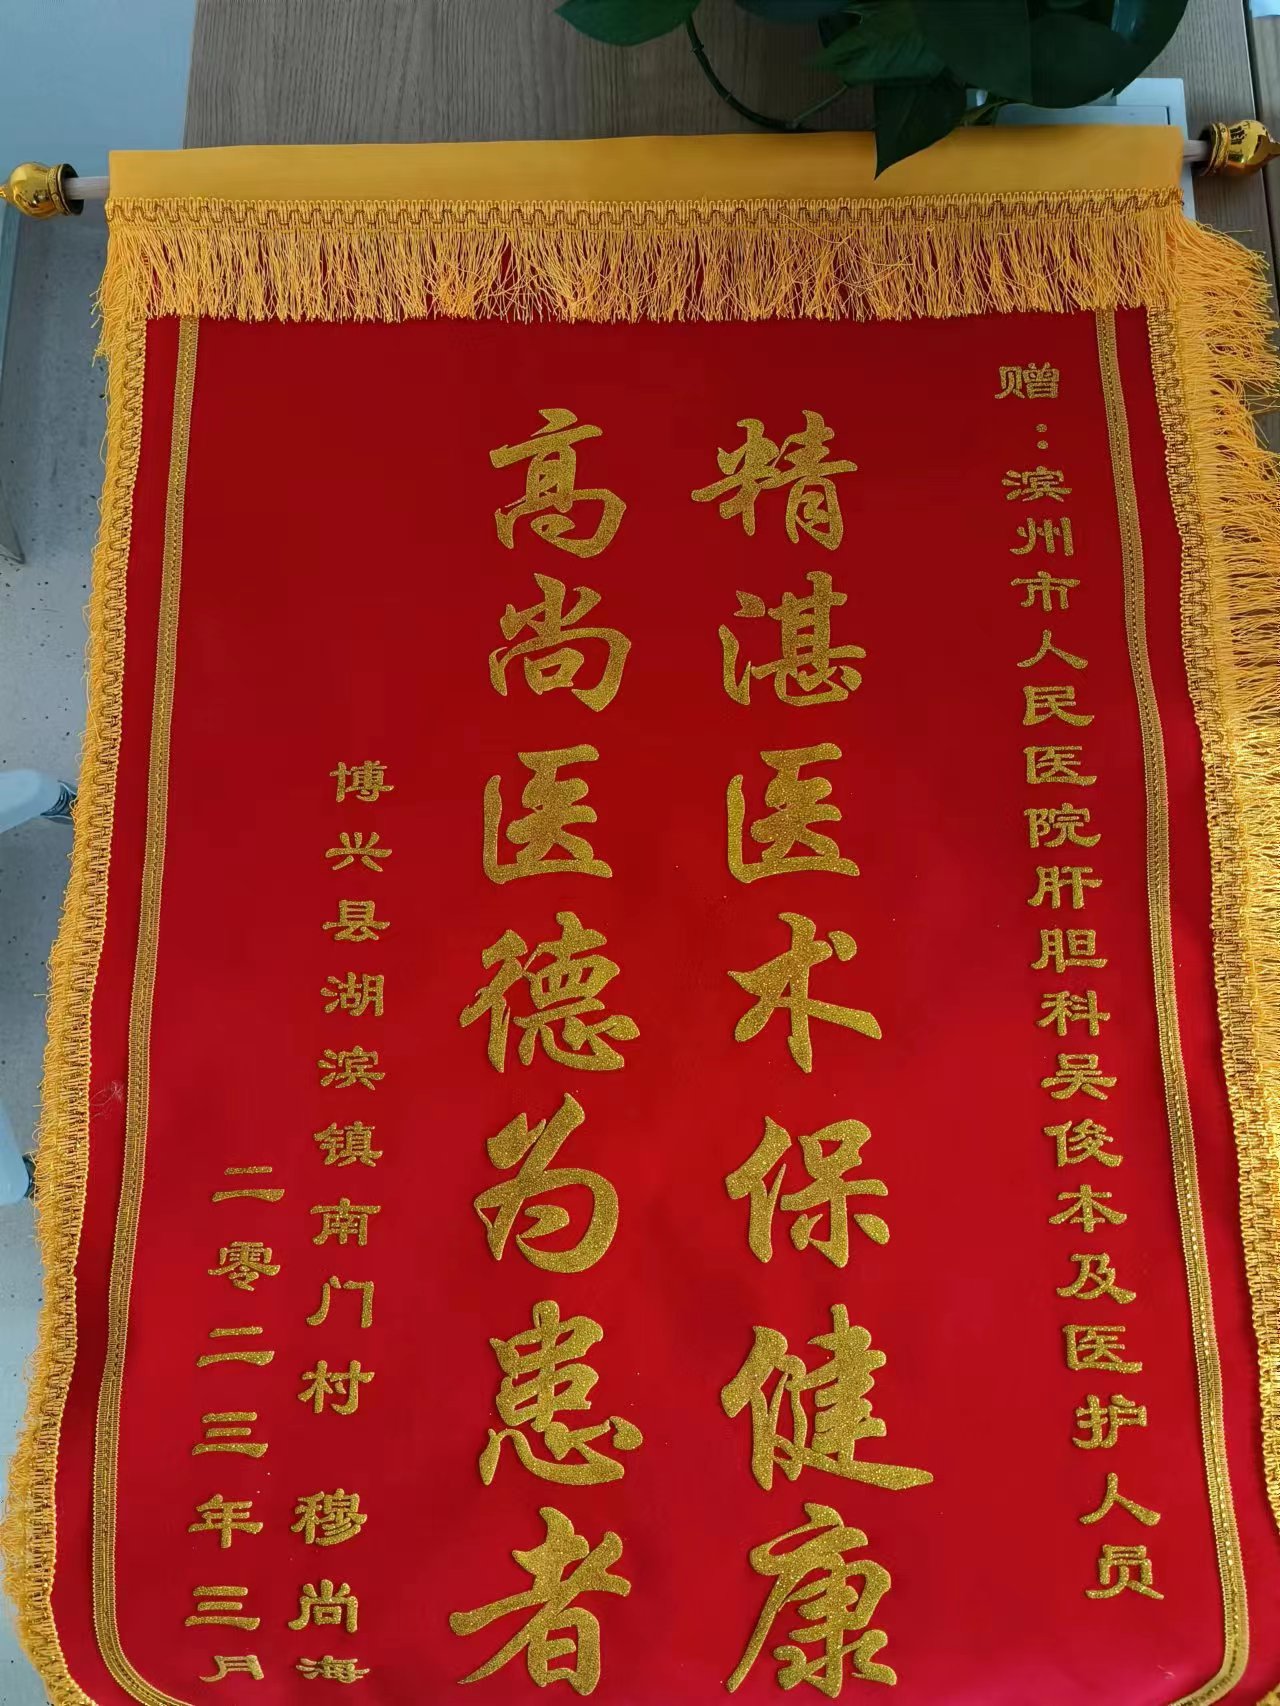 赠：滨州市人民医院肝胆科吴俊本及医护人员
精湛医术保健康
高尚医德为患者
博兴县湖滨镇南门村 穆尚海
二零二三年三月